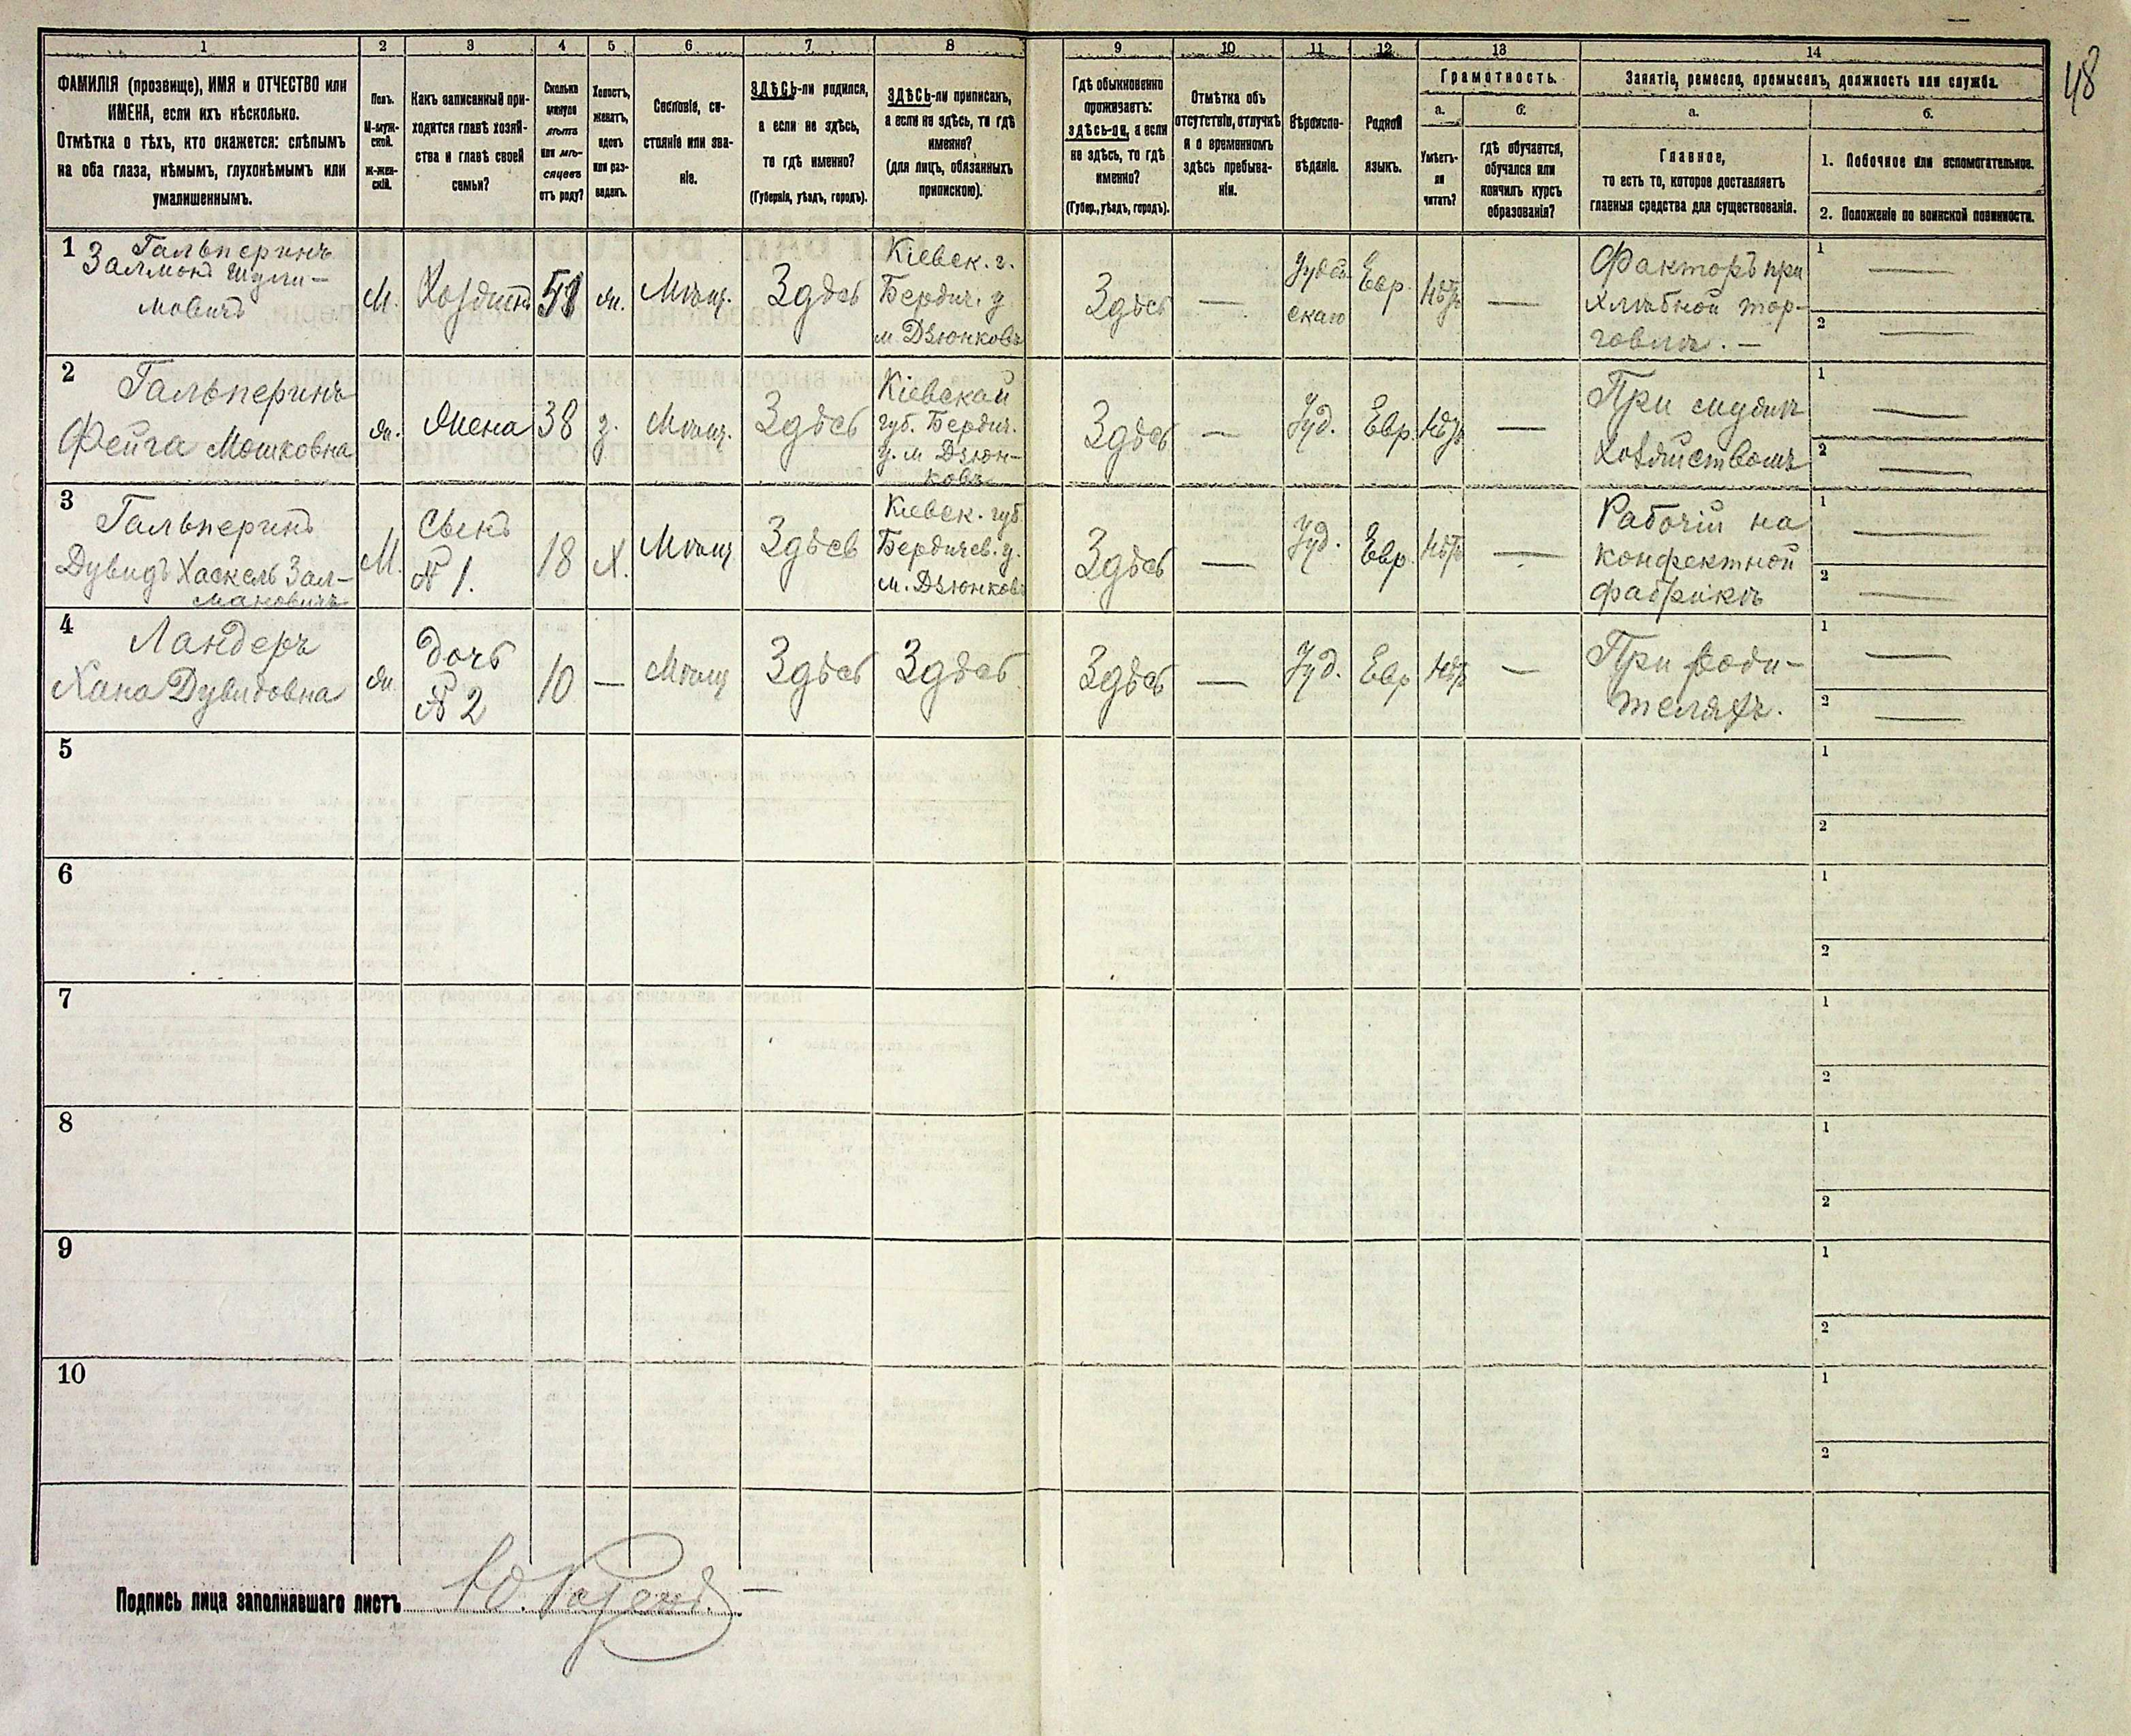 48
1 2 3 4 5 6 7 8 9 10 11 12 13 14
ФАМИЛІЯ (прозвище), ИМЯ и ОТЧЕСТВО или
ИМЕНА, если ихъ нѣсколько.
Отмѣтка о тѣхъ, кто окажется: слѣпымъ
на оба глаза, нѣмымъ, глухонѣмымъ или
умалишеннымъ.
Полъ.
М-муж-
ской.
Ж-жен-
скій.
Какъ записанный при-
ходится главѣ хозяй-
ства и главѣ своей
семьи?
Сколько
минуло
лѣтъ
или мѣ-
сяцевъ
отъ роду?
Холостъ,
женатъ,
вдовъ
или раз-
веденъ.
Сословіе, со-
стояніе или зва-
ніе.
ЗДѢСЬ-ли родился,
а если не здѣсь,
то гдѣ именно?
(Губернія, уѣздъ, городъ).
ЗДѢСЬ-ли приписанъ,
а если не здѣсь, то гдѣ
именно?
(для лицъ, обязанныхъ
припискою).
Гдѣ обыкновенно
проживаетъ:
здѣсь-ли, а если
не здѣсь, то гдѣ
именно?
(Губер., уѣздъ, городъ).
Отмѣтка объ
отсутствіи, отлучкѣ
и о временномъ
здѣсь пребыва-
ніи.
Вѣроиспо-
вѣданіе.
Родной
языкъ.
Грамотность.
а.
Умѣетъ-
ли
читать?
б.
гдѣ обучается,
обучался или
кончилъ курсъ
образованія?
Занятіе, ремесло, промыселъ, должность или служба.
а.
Главное,
то есть то, которое доставляетъ
главныя средства для существованія.
б.
1. Побочное или вспомогательное.
2. Положеніе по воинской повинности.
1 Гальперинъ
Залмонъ Шули-
мовичъ
М.
Хозяинъ
51
ж.
Мѣщ.
Здѣсь
Кіевск. г.
Бердич. у
м. Дзюньковъ
Здѣсь
—
Іудей
скаго
Евр.
Нѣтъ
—
Факторъ при
хлѣбной тор-
говлѣ. —
1 —
2 —
2 Гальперинъ
Фейга Мошковна
ж.
Жена
38
з.
Мѣщ.
Здѣсь
Кіевской
губ. Бердич.
у. м Дзюн-
ковъ
Здѣсь
—
Іуд.
Евр.
Нѣтъ
—
При мужѣ
хозяйствомъ
1 —
2 —
3 Гальперинъ
Дувидъ Хаскель Зал-
мановичъ
М.
Сынъ
№ 1.
18
Х.
Мѣщ
Здѣсь
Кіевск. губ.
Бердичев. у.
м. Дзюнковъ
Здѣсь
—
Іуд.
Евр.
Нѣтъ
—
Рабочій на
конфектной
фабрикѣ
1 —
2 —
4 Ландеръ
Хана Дувидовна
ж.
Дочь
№ 2
10
—
Мѣщ
Здѣсь
Здѣсь
Здѣсь
—
Іуд.
Евр
Нѣтъ
—
При роди-
теляхъ.
1 —
2 —
5
1
2
6
1
2
7
1
2
8
1
2
9
1
2
10
1
2
Подпись лица заполнявшаго листъ